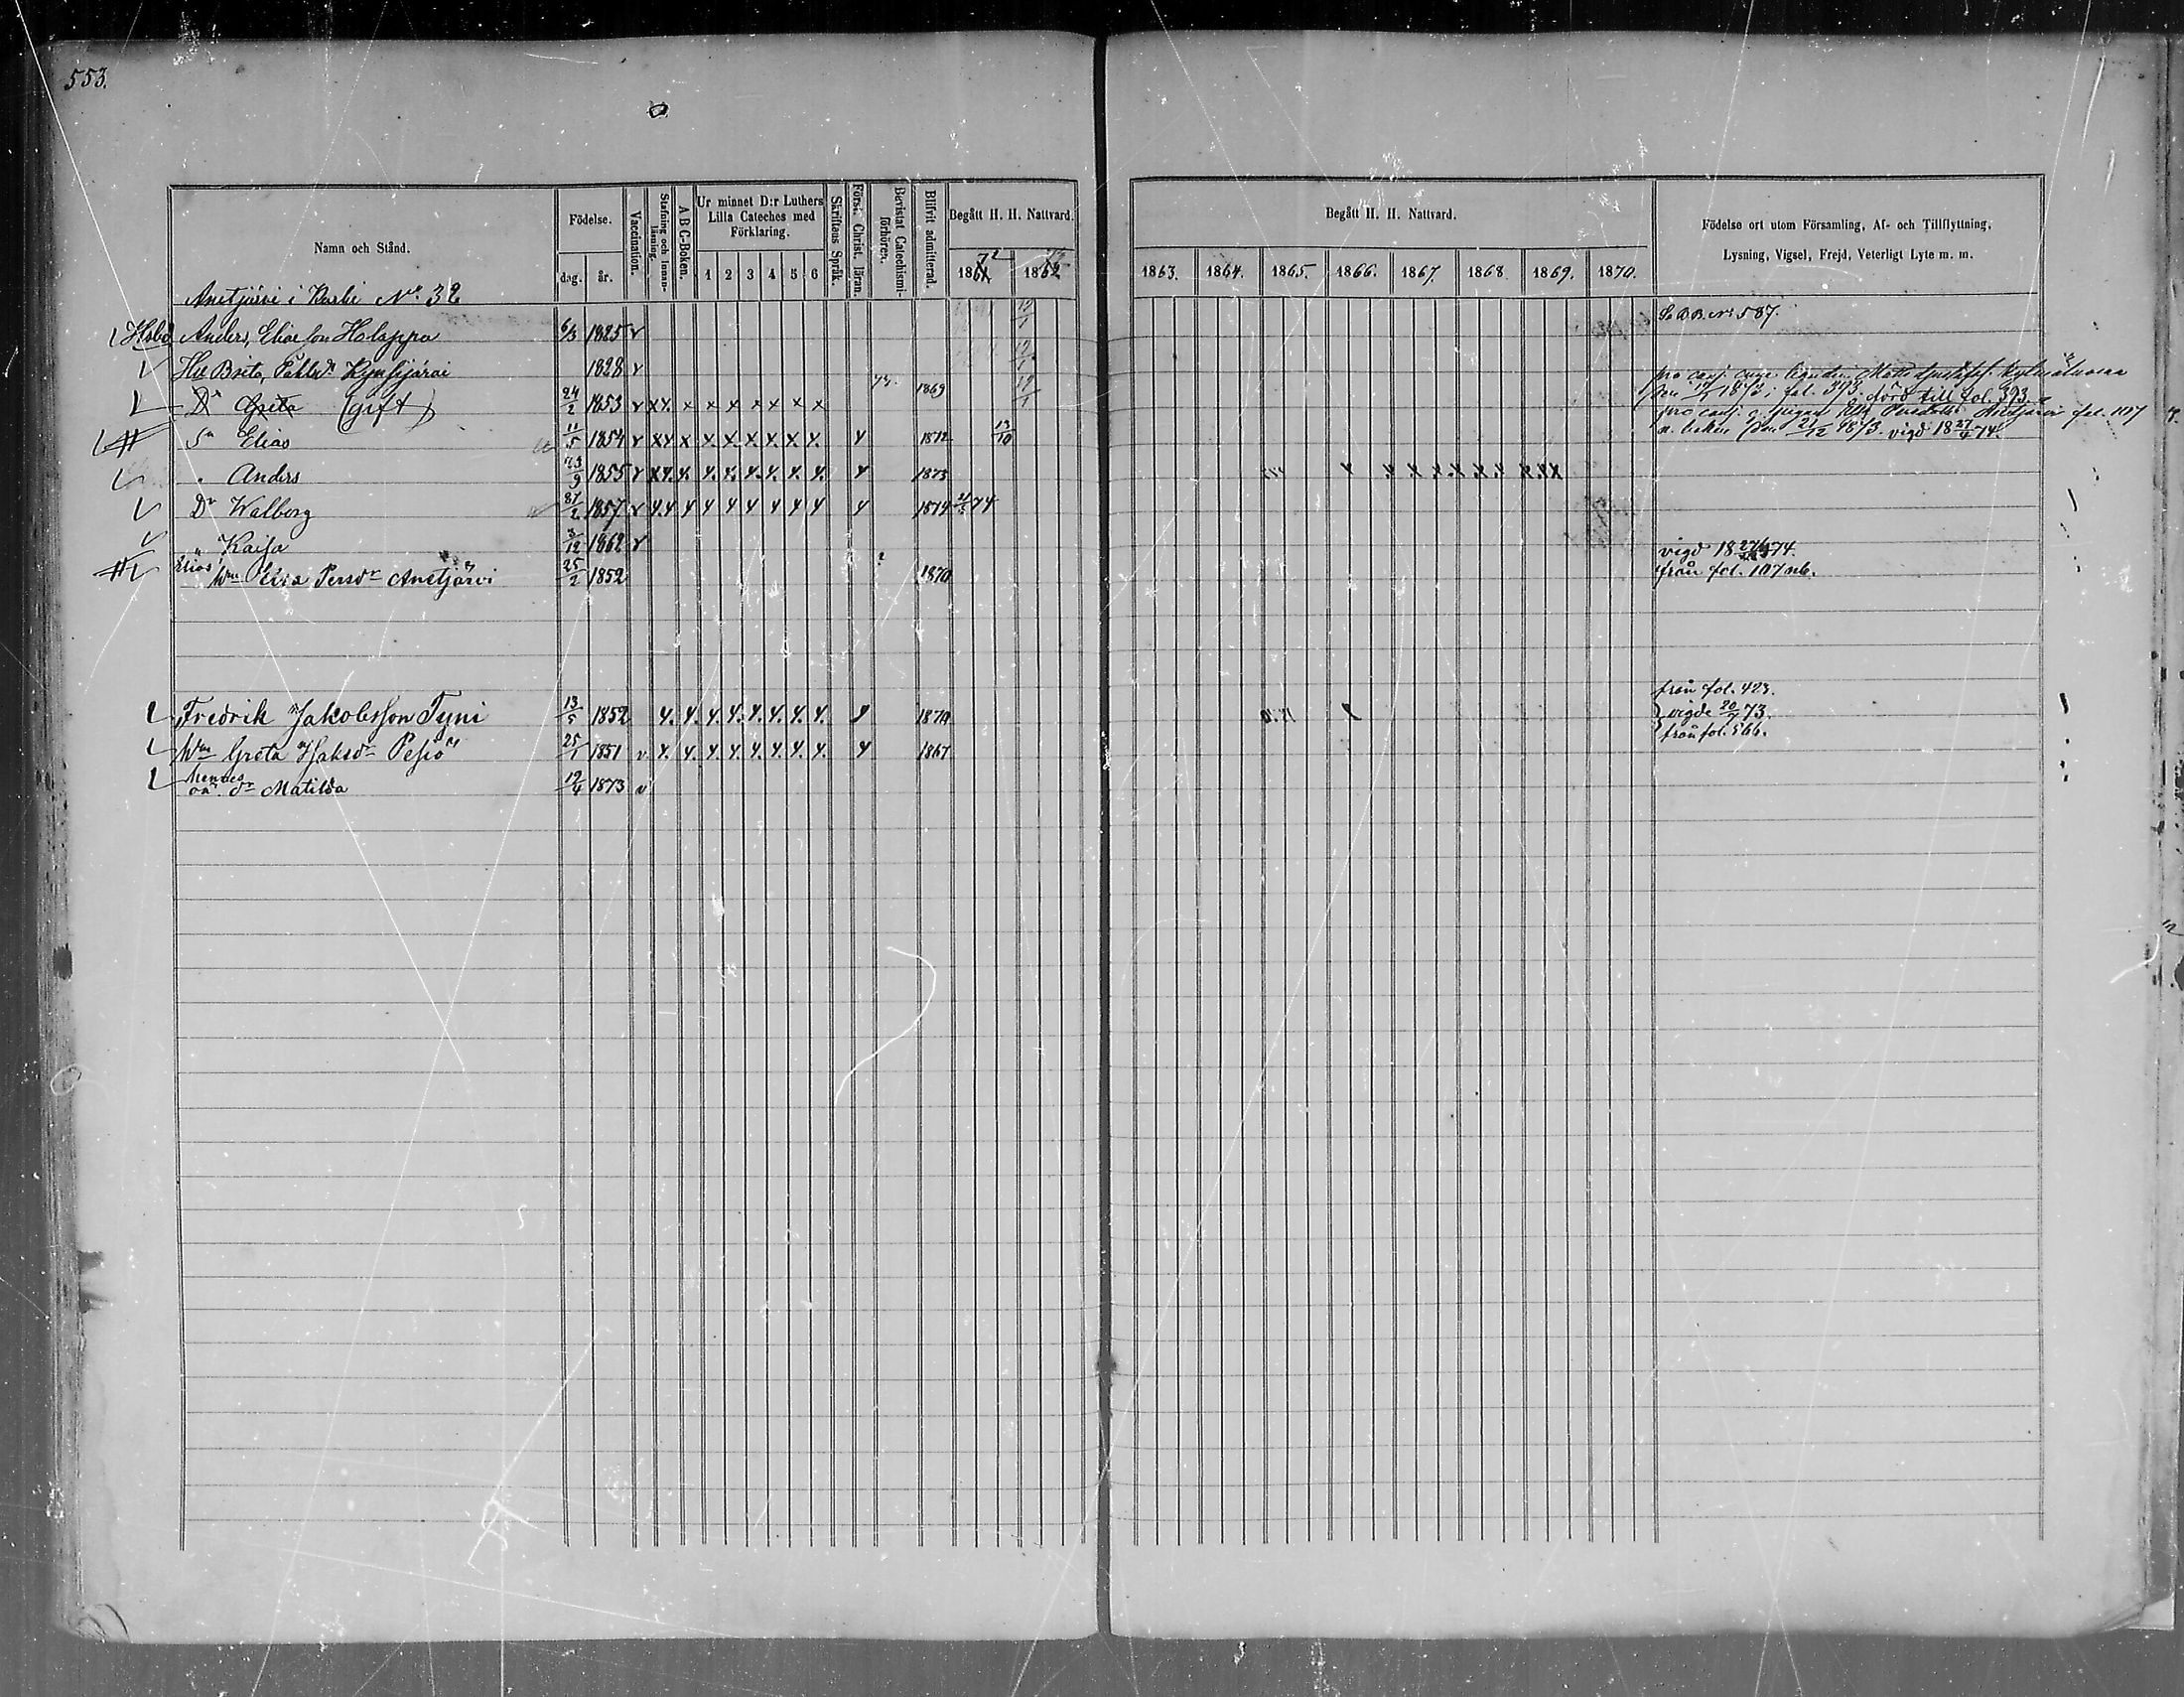 553.
Namn och Stånd.
Födelse.
dag.
år.
Vaccination.
Stafning och Innan-läsning.
A B C-Boken.
Ur minnet D:r Luthers
Lilla Cateches med
Förklaring.
1 2 3 4 5 6
Skriftens Språk.
Först. Christ. läran.
Bevistat Catechismi-förhören.
Blifvit admitterad.
Begått H. H. Nattvard.
1861 72
1862
Begått H. H. Nattvard.
1863. 1864. 1865. 1866. 1867. 1868. 1869. 1870.
Födelse ort utom Församling, Af- och Tillflyttning,
Lysning, Vigsel, Frejd, Veterligt Lyte m. m.
Anetjärvi i Karbi No. 32
Anders, Eliasson Holappa 6/3 1825 v 12/1 No 587.
Hu Brita, Påhlsdr 1828 v 12/1
Dr Greta (gift) 24/2 1853 v x x x x x x x x x 1869 12/1 1873; fol. 393. förd till fol. 393.
Sn Elias 11/5 1854 v x x x x x x x x x x 1872 13/10 Anetjärvi fol. 1107
21/12 1873. vigd 18 27/4 74.
" Anders 23/9 1855 v x x x x x x x x x x 1873
Dr Walborg 1857 v x x x x x x x x x x 1874 74
" Kaisa 3/12 1862 v vigd 18 27/4 74.
Elias' Hm Elsa Persdr Anetjärvi 25/2 1852 1870 från fol. 1107 nb.
från fol. 423.
Fredrik Jakobsson Tyni 13/5 1852 x x x x x x x x x 1870 vigde 20/7 73.
Hm Greta Jaksdr Pesiö 25/1 1851 v x x x x x x x x x 1867 från fol. 566.
hennes oä. dr Matilda 12/4 1873 v